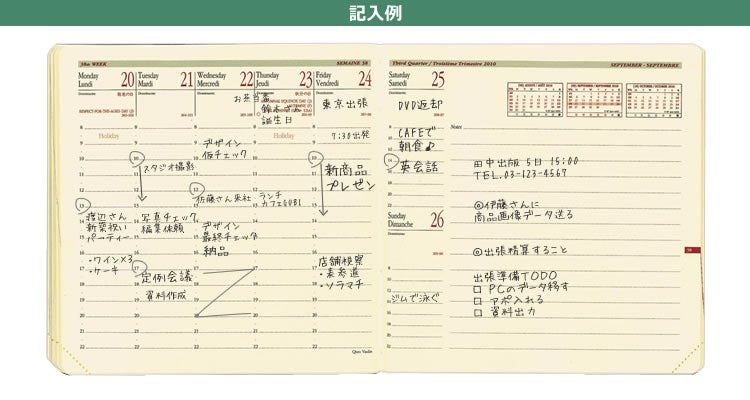 記入例
38th WEEK
SEMAINE 38
Third Quarter / Troisième Trimestre 2010
SEPTEMBER - SEPTEMBRE
Monday
Lundi
20
Tuesday
Mardi
21
Wednesday
Mercredi
22
Thursday
Jeudi
23
Friday
Vendredi
24
Saturday
Samedi
25
Dominante
RESPECT-FOR-THE-AGED DAY (J)
Holiday
渡辺さん
新築祝い
パーティー
・ワイン×3
・ケーキ
スタジオ撮影
写真チェック
編集依頼
定例会議
資料作成
デザイン
仮チェック
佐藤さん来社
デザイン
最終チェック
納品
誕生日
Holiday
ランチ
東京出張
7:30出発
新商品
プレゼン
店舗視察
・表参道
・ソラマチ
DVD返却
CAFEで
朝食♪
英会話
Sunday
Dimanche
26
ジムで泳ぐ
Notes
田中出版 5日 15:00
TEL.03-123-4567
@伊藤さんに
商品画像データ送る
@出張精算すること
出張準備TODO
□ PCのデータ移す
□ アポ入れる
□ 資料出力
Quo Vadis